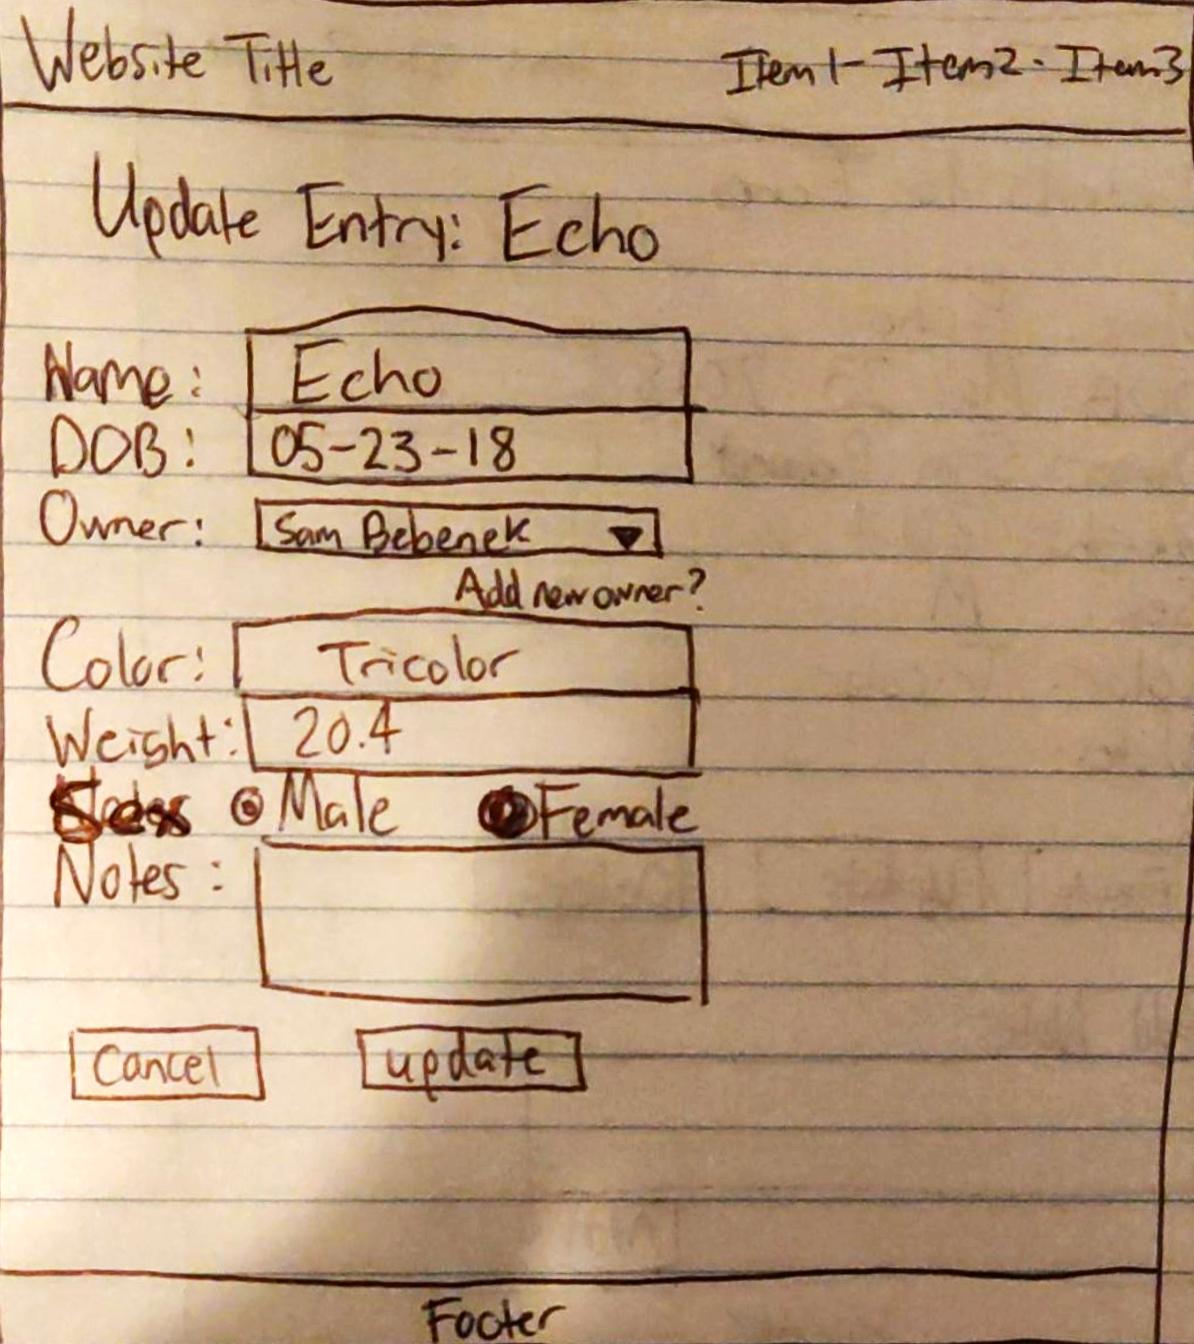 Website Title Item1- Item2 - Item3
Update Entry: Echo
Name: Echo
DOB: 05-23-18
Owner: Sam Bebenek
Add new owner?
Color: Tricolor
Weight: 20.4
Sex Male Female
Notes:
Cancel update
Footer